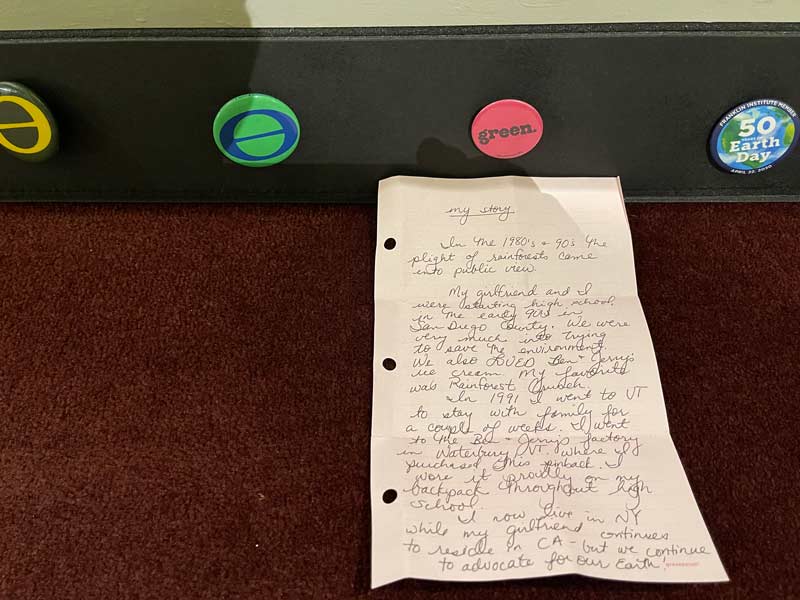 e
e
green.
FRANKLIN INSTITUTE MEMBER
50
YEARS OF
Earth
Day
APRIL 22, 2020
my story
In the 1980's & 90s the
plight of rainforests came
into public view.
My girlfriend and I
were starting high school
in the early 90s in
San Diego County. We were
very much into trying
to save the environment.
We also LOVED Ben & Jerry's
ice cream. My favorite
was Rainforest Crunch.
In 1991 I went to VT
to stay with family for
a couple of weeks. I went
to the Ben & Jerry's factory
in Waterbury VT, where I
purchased this pinback. I
wore it proudly on my
backpack throughout high
school.
I now live in NY
while my girlfriend continues
to reside in CA - but we continue
to advocate for our Earth!